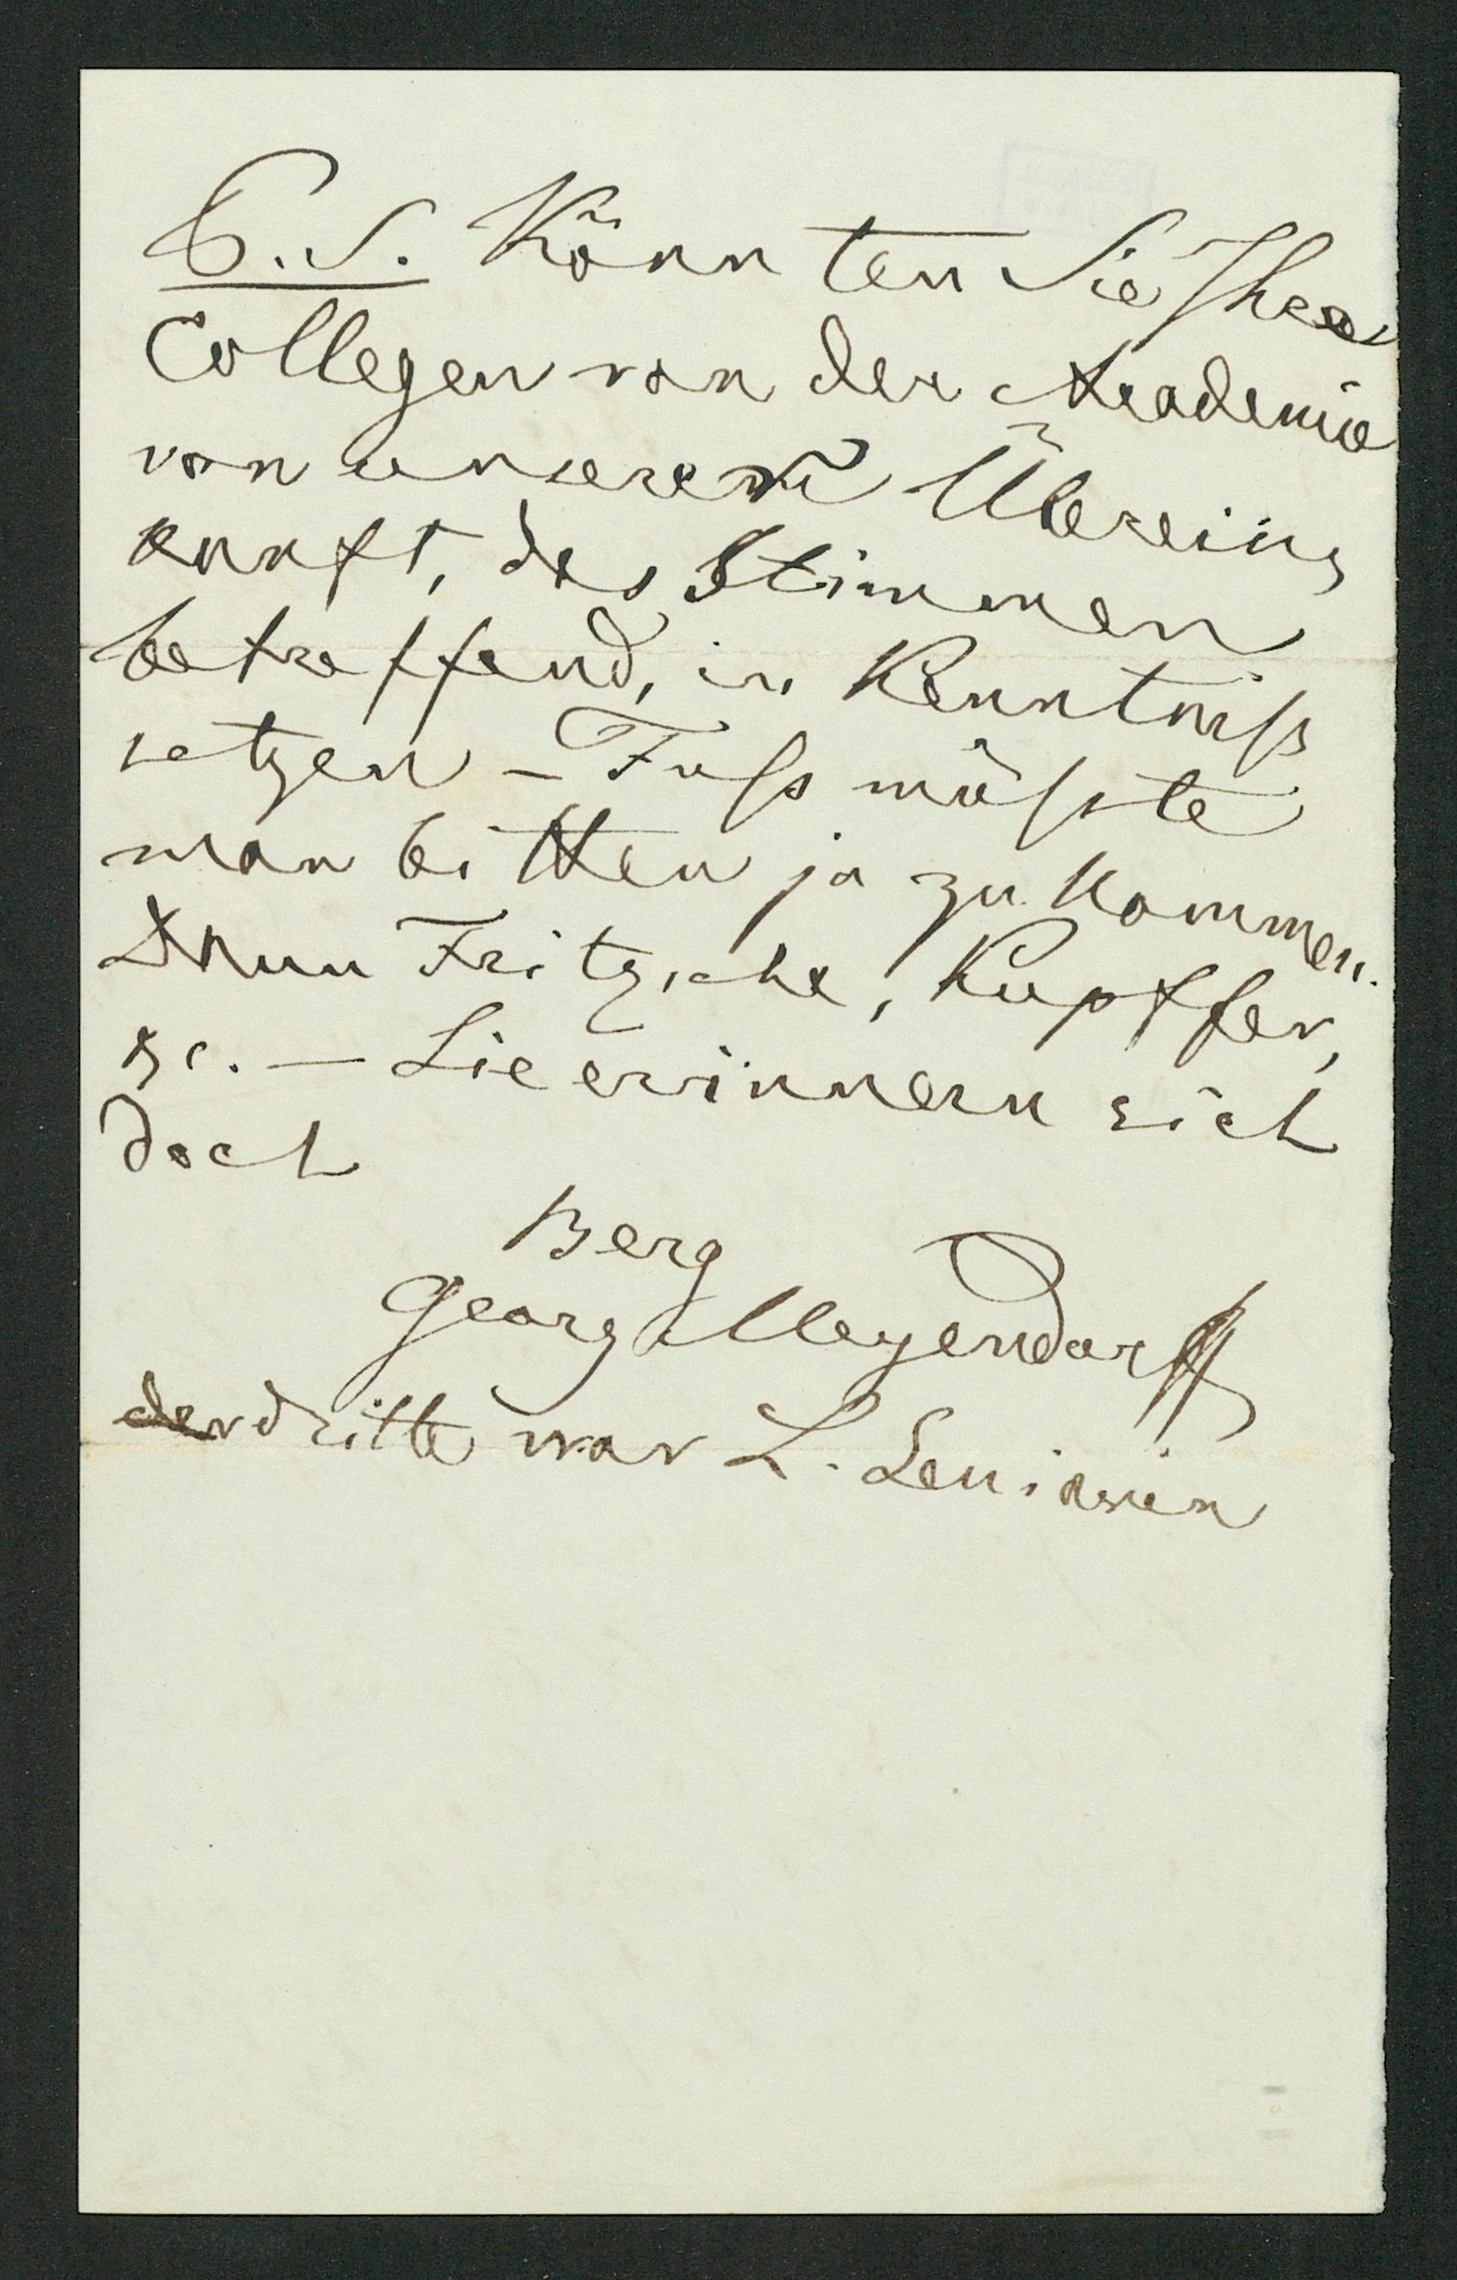 P.S. Könnten Sie Ihre
Collegen von der Academie
von unserem Überein¬
kunft, das Stimmen
betreffend, in Kenntniß
setzen – Fuſs müſste
man bitten ja zu kommen.
Dann Fritzsche, Kupffer,
&c. – Sie erinnern sich
doch
Berg
Georg Meyendorff
der dritte war L.